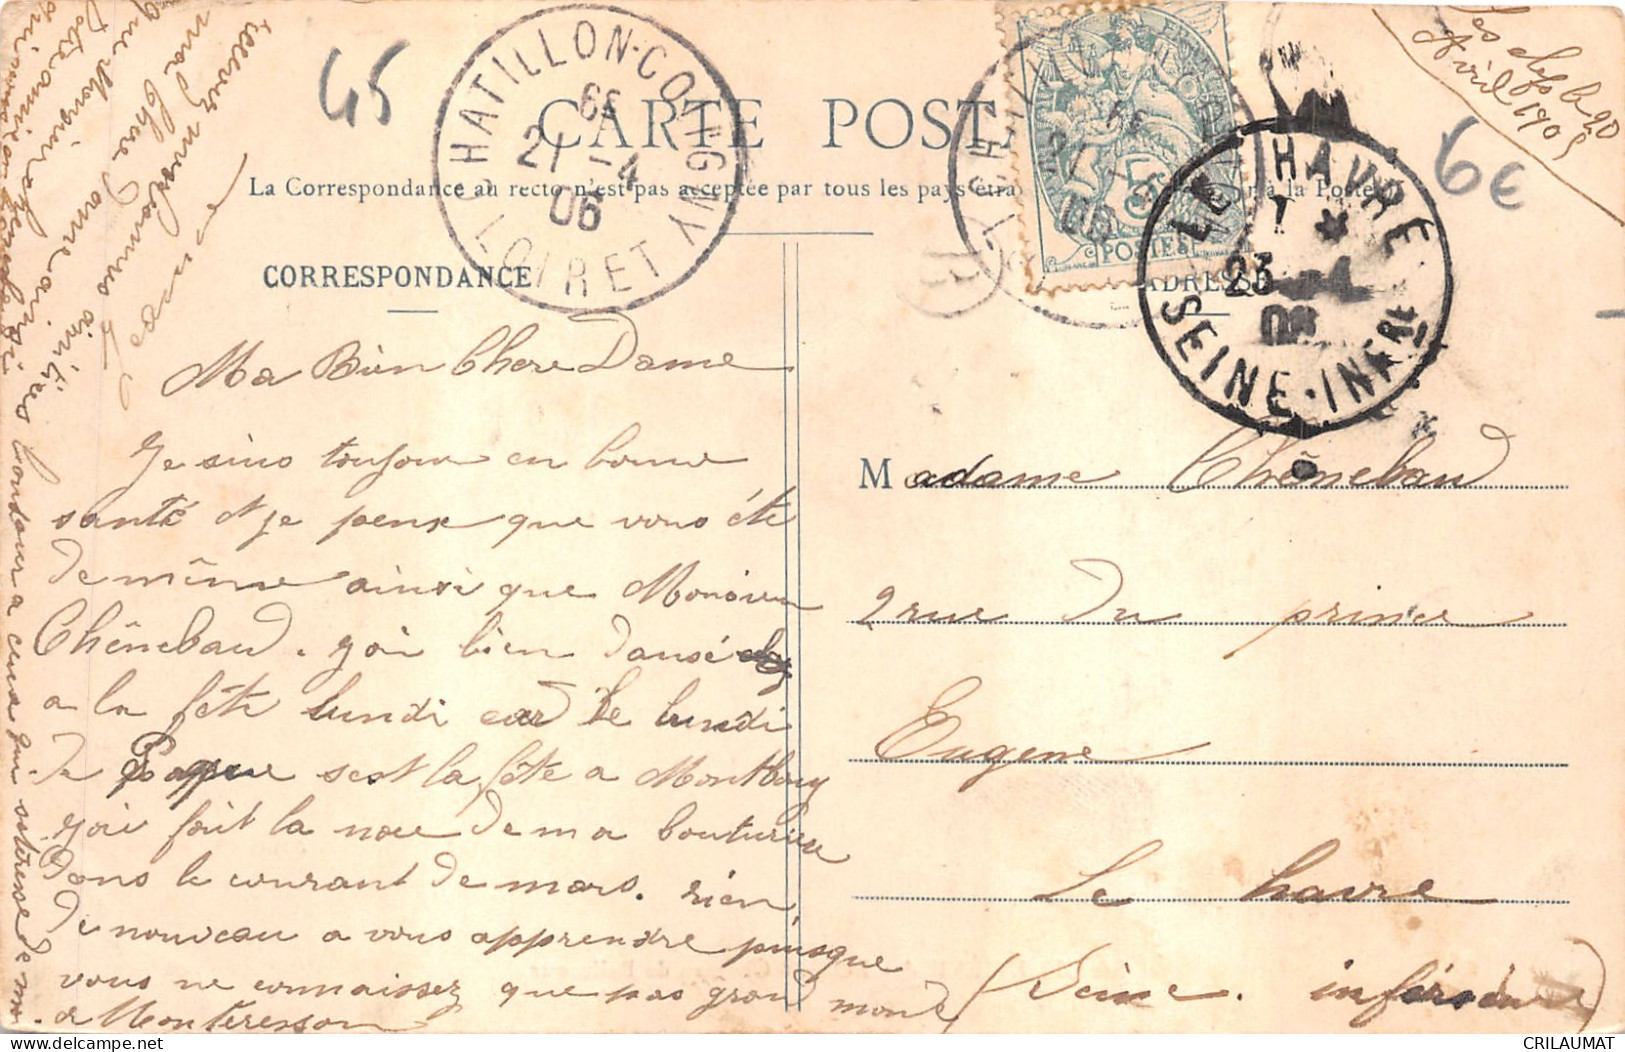 CARTE POST
La Correspondance au recto n'est pas acceptée par tous les pays étra
à la Poste
CORRESPONDANCE
ADRESSE
CHATILLON-COLIGNY
LOIRET
21 -4
06
POSTES
LE HAVRE
23 -4
06
SEINE-INFRE
45
6€
Les clefs le 20
Avril 1905
Ma Bien Chere Dame
Je suis toujour en bonne
santé et je pense que vous éte
de même ainsi que Monsieu
Chênebaud. j'ai bien dansé
a la fête lundi card le lundi
de Paque sest la fête a Montbouy
j'ai fait la noce de ma couturiere
dans le courant de mars. rien
de nouveau a vous apprendre puisque
vous ne connaissez que pas grand monde
a Monteresson
Recever nous
ma Chere Dame ainsi
que Monsieur
Madame Chênebaud
2 rue du prince
Eugene
Le havre
(Seine. inferieure)
CRILAUMAT